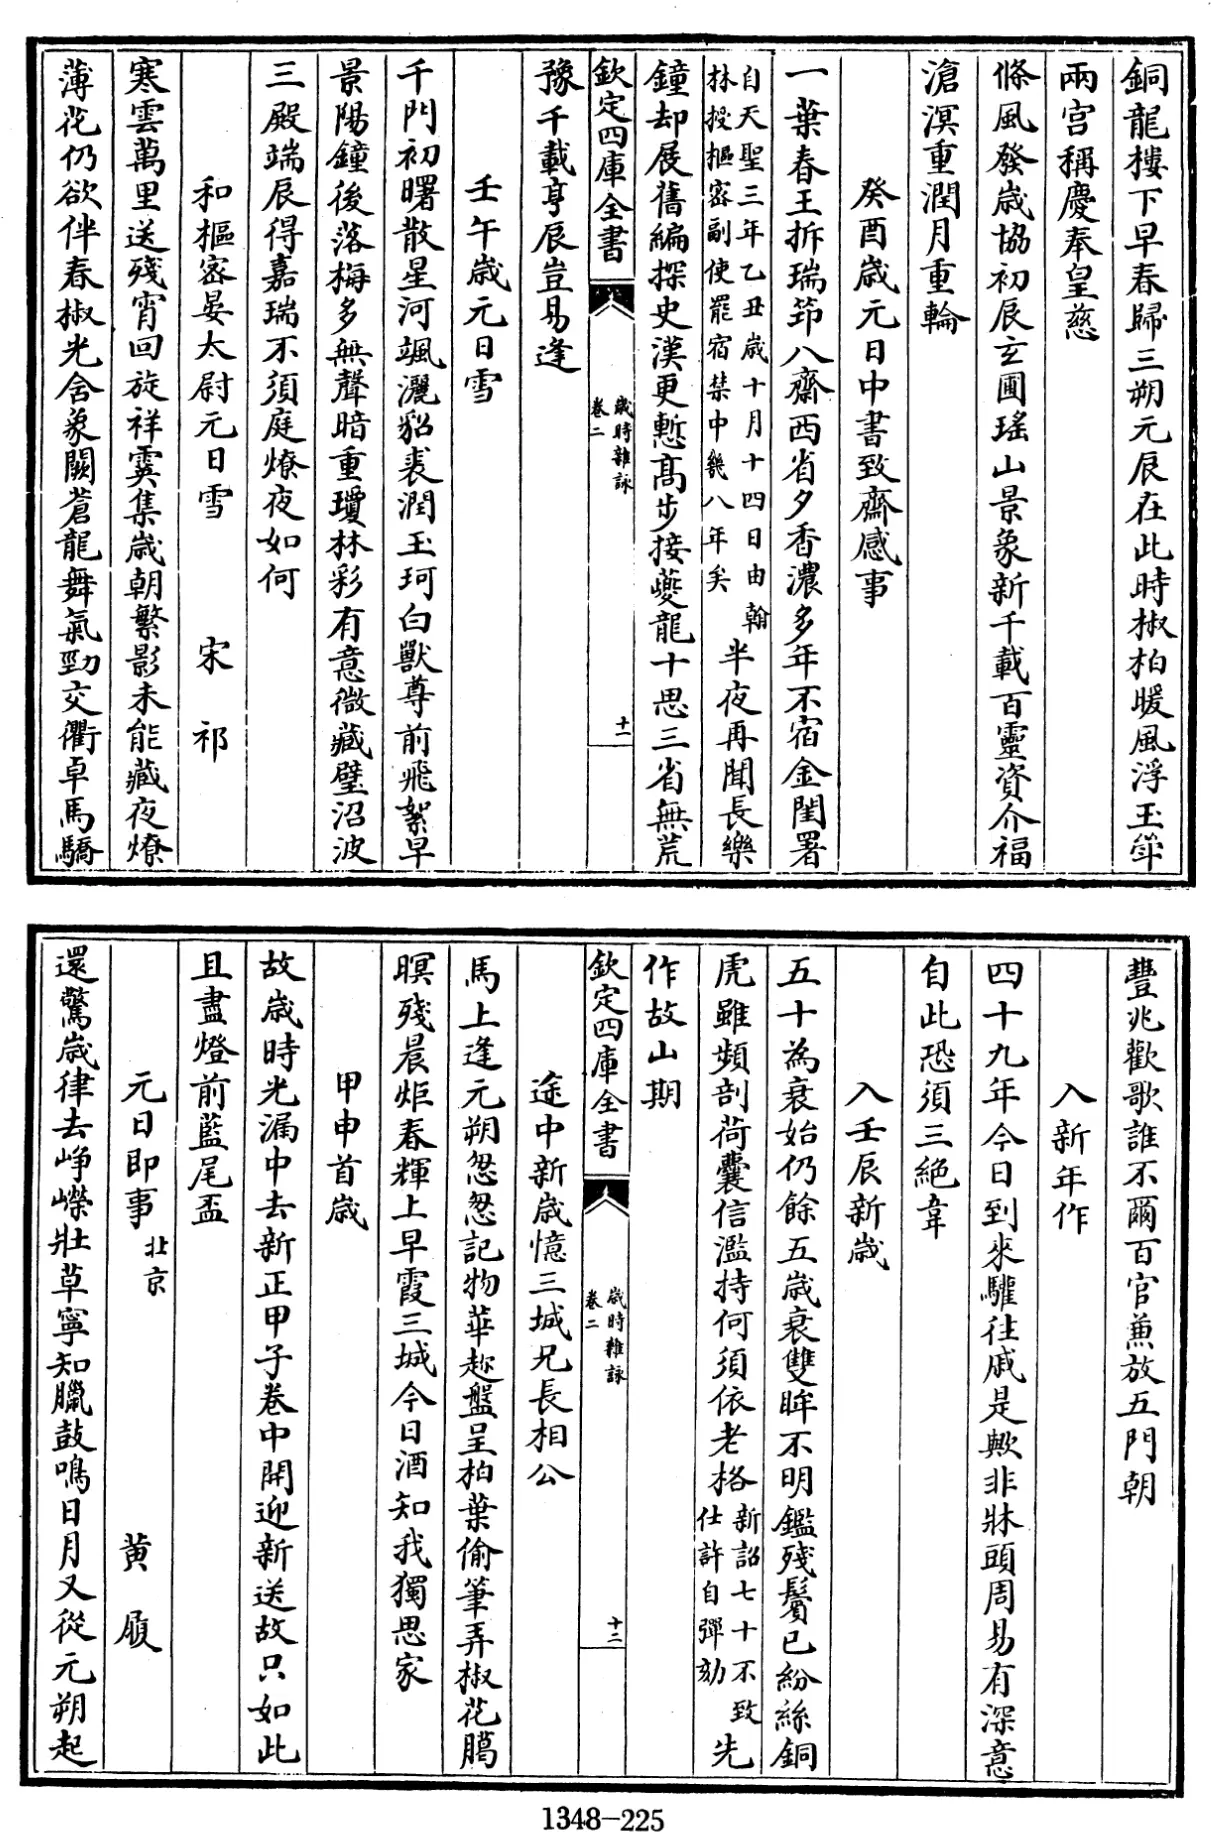 銅龍樓下早春歸三朔元辰在此時椒柏暖風浮玉斝
兩宫稱慶奉皇慈
條風發歳協初辰玄圃瑤山景象新千載百靈資介福
滄溟重潤月重輪
癸酉歳元日中書致齋感事
一葉春王拆瑞筇八齋西省夕香濃多年不宿金閨署
自天聖三年乙丑歳十月十四日由翰
林授樞密副使罷宿禁中幾八年矣
半夜再聞長樂
鐘却展舊編探史漢更慙髙步接夔龍十思三省無荒
欽定四庫全書
歳時雜詠
卷二
十一
豫千載亨辰豈易逢
壬午歳元日雪
千門初曙散星河颯灑貂裘潤玉珂白獸尊前飛絮早
景陽鐘後落梅多無聲暗重瓊林彩有意微藏璧沼波
三殿端辰得嘉瑞不須庭燎夜如何
和樞密晏太尉元日雪
宋祁
寒雲萬里送殘宵回旋祥霙集歳朝繁影未能藏夜燎
薄花仍欲伴春椒光含象闕蒼龍舞氣勁交衢卓馬驕
豐兆歡歌誰不爾百官兼放五門朝
入新年作
四十九年今日到來驩往戚是歟非牀頭周易有深意
自此恐須三絶韋
入壬辰新歳
五十為衰始仍餘五歳衰雙眸不明鑑殘鬢已紛絲銅
虎雖頻剖荷囊信濫持何須依老格
新詔七十不致
仕許自彈劾
先
作故山期
欽定四庫全書
歳時雜詠
卷二
十二
途中新歳憶三城兄長相公
馬上逢元朔怱怱記物華趂盤呈柏葉偷筆弄椒花臈
暝殘晨炬春輝上早霞三城今日酒知我獨思家
甲申首歳
故歳時光漏中去新正甲子巻中開迎新送故只如此
且盡燈前藍尾盃
元日即事
北京
黄履
還驚歳律去崢嶸壯草寧知臘鼓鳴日月又從元朔起
1348-225